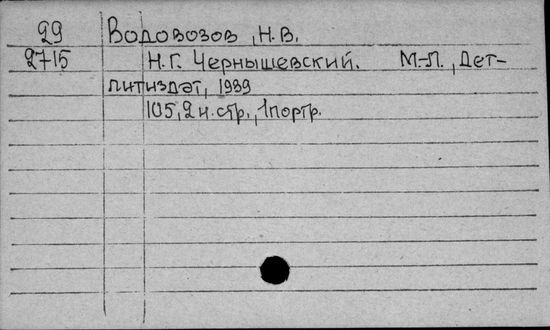 29 Водовозов, Н.В.
2715 Н.Г. Чернышевский. М-Л., Дет-
литиздат, 1939
105, 2 н. стр., 1 портр.